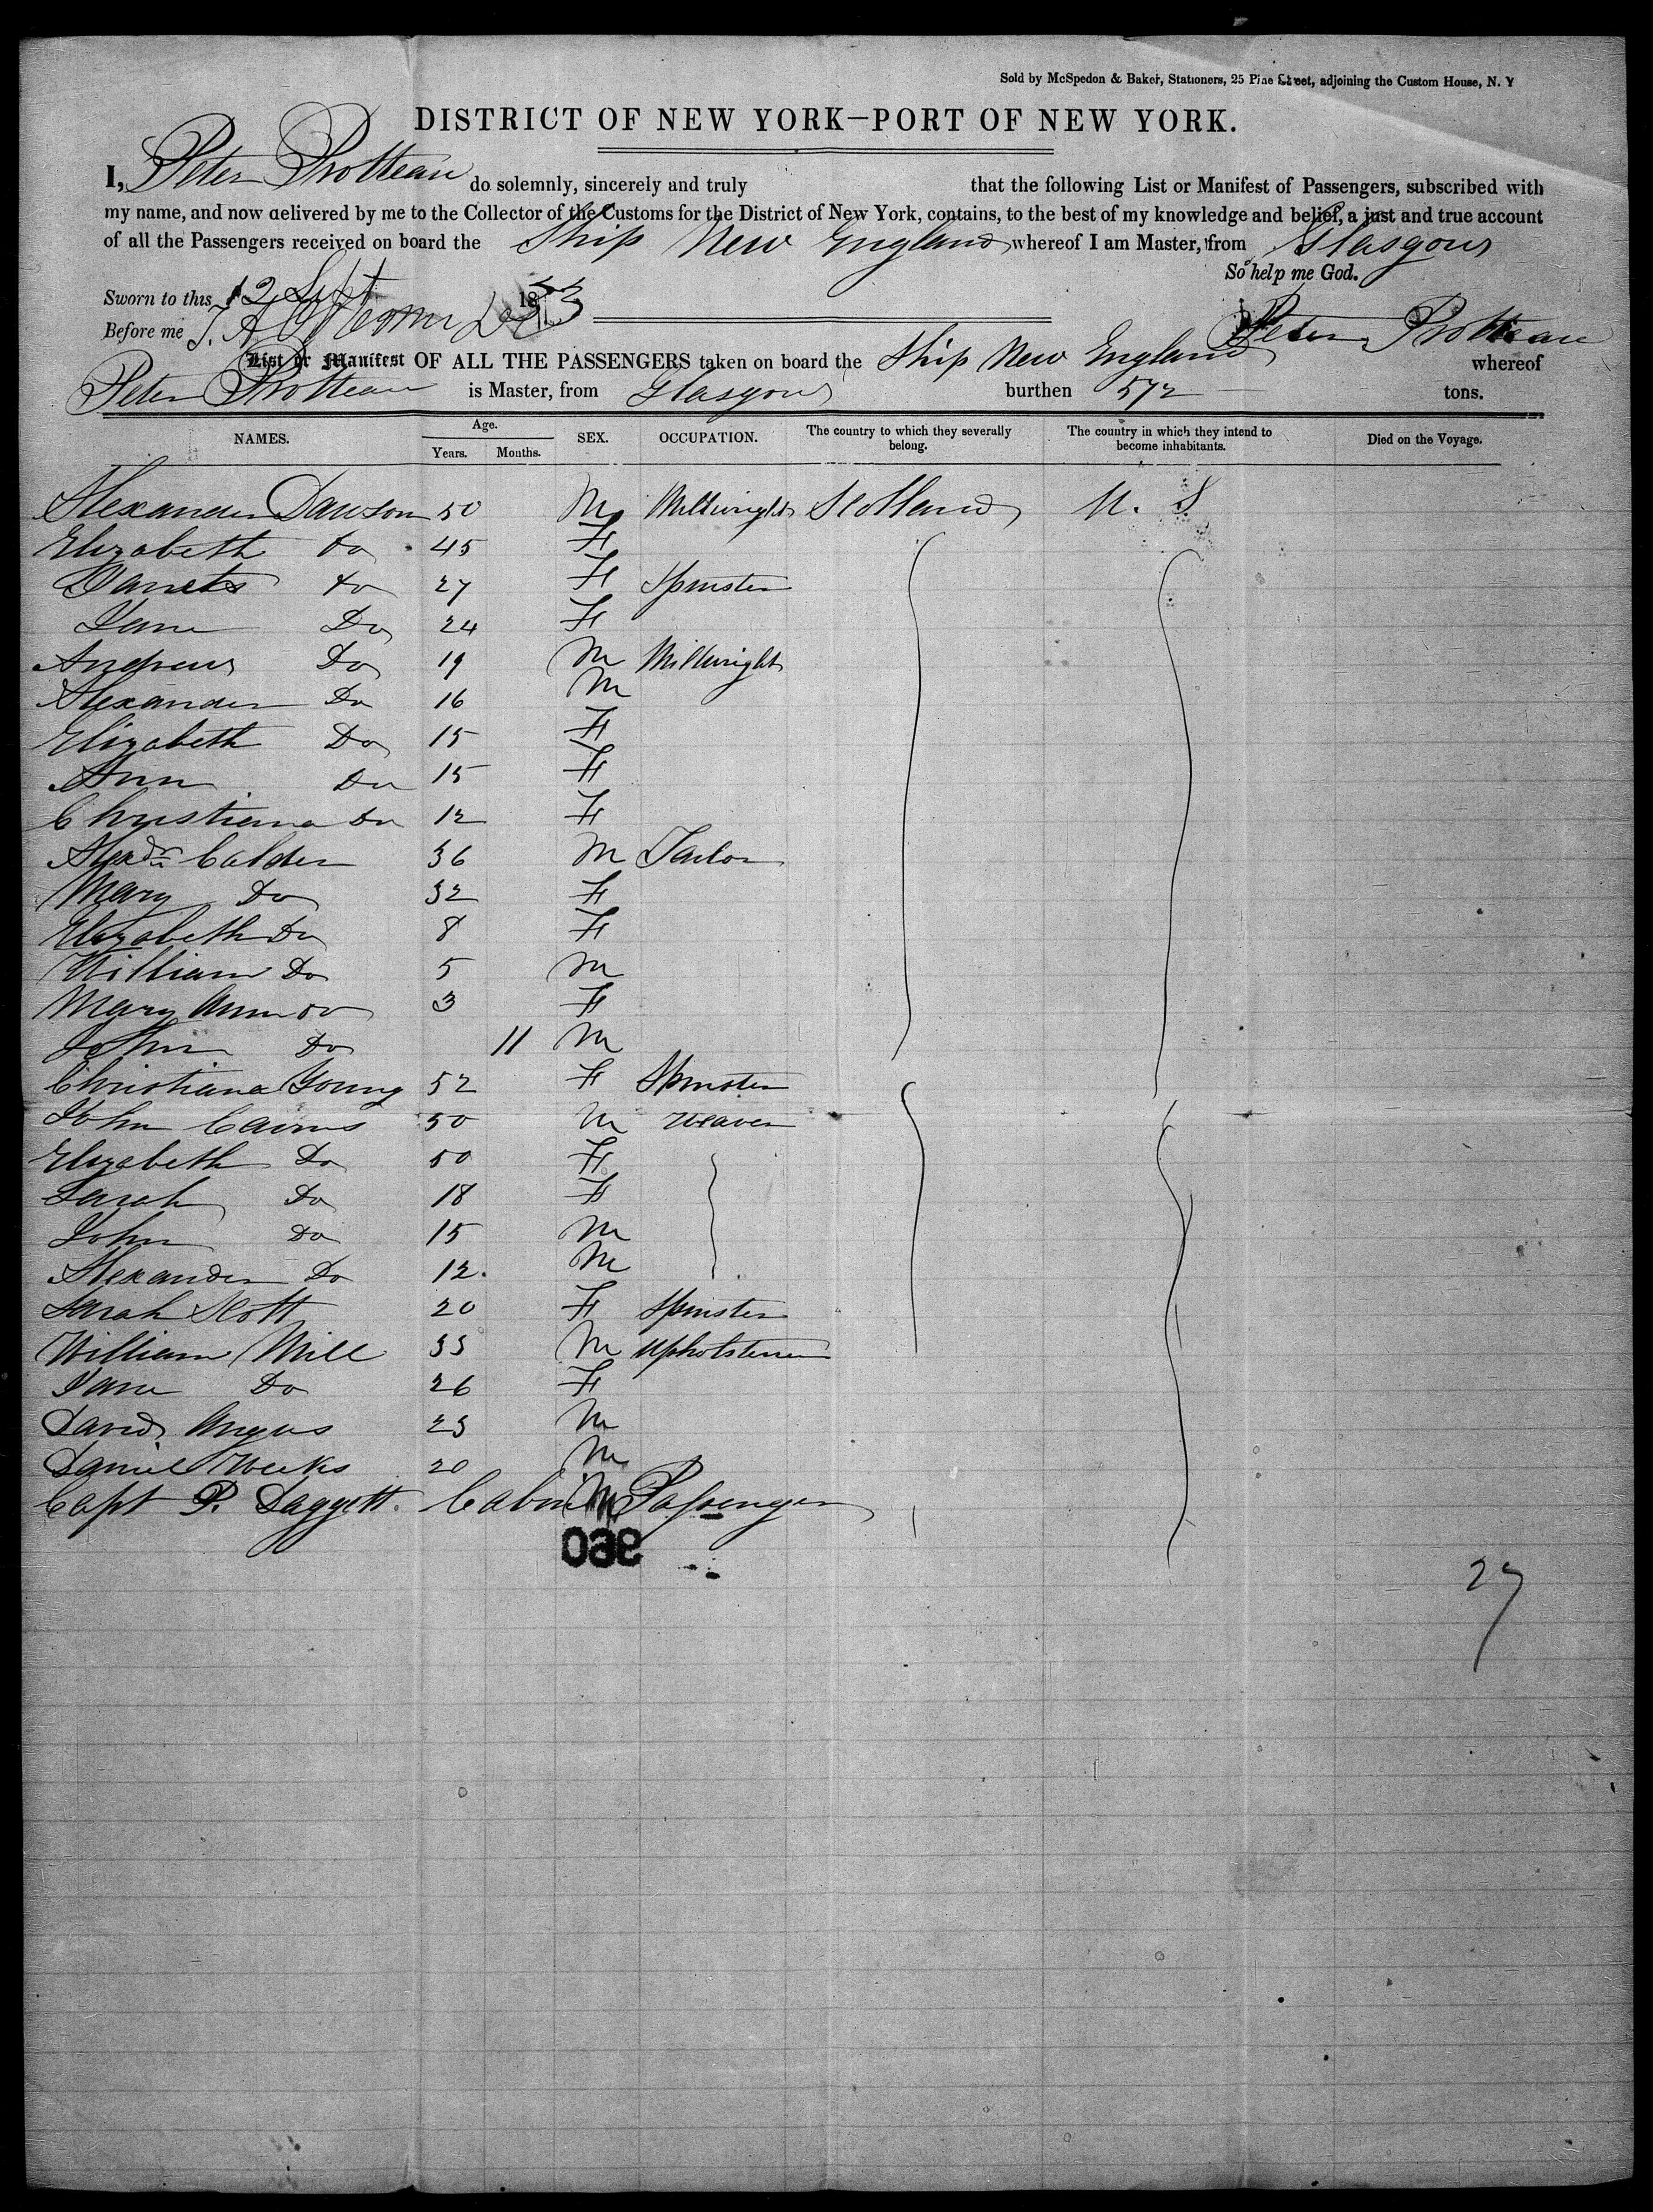 Sold by McSpedon & Baker, Stationers, 25 Pine Street, adjoining the Custom House, N. Y
DISTRICT OF NEW YORK—PORT OF NEW YORK.
I, Peter Protteau do solemnly, sincerely and truly that the following List or Manifest of Passengers, subscribed with
my name, and now delivered by me to the Collector of the Customs for the District of New York, contains, to the best of my knowledge and belief, a just and true account
of all the Passengers received on board the Ship New England whereof I am Master, from Glasgow
So help me God.
Sworn to this 12 Sept 1853
Before me Peter Protteau
List or Manifest OF ALL THE PASSENGERS taken on board the Ship New England whereof
Peter Protteau is Master, from Glasgow burthen 572 tons.
NAMES. Age. Years. Months. SEX. OCCUPATION. The country to which they severally belong. The country in which they intend to become inhabitants. Died on the Voyage.
Alexander Dawson 50 M Millwright Scotland U. S
Elizabeth do 45 F
Janet do 27 F Spinster
Jane Do 24 F
Andrew Do 19 M Millwright
Alexander Do 16 M
Elizabeth Do 15 F
Ann Do 15 F
Christiana Do 12 F
Alexdr Calder 36 M Tailor
Mary Do 32 F
Elizabeth Do 8 F
William Do 5 M
Mary Ann Do 3 F
John Do 11 M
Christiana Young 52 F Spinster
John Cairns 50 M Weaver
Elizabeth Do 50 F
Sarah Do 18 F
John Do 15 M
Alexander Do 12. M
Sarah Scott 20 F Spinster
William Mill 33 M Upholsterer
Jane Do 26 F
David Angus 23 M
Daniel Weeks 20 M
Capt P. Daggett. Cabin M Passenger
980
27